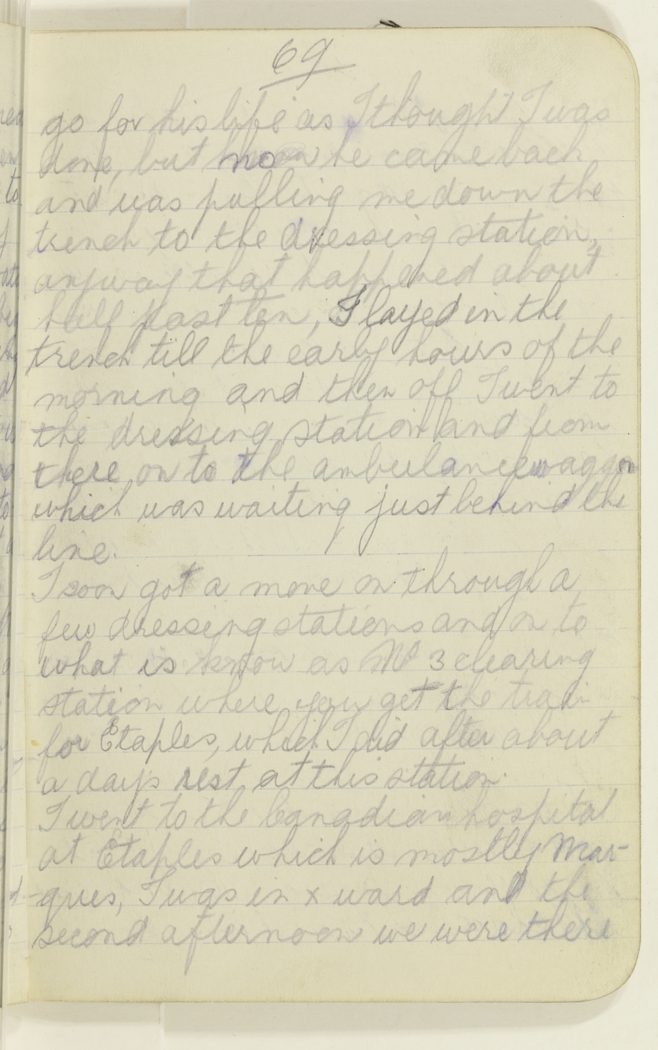 69
go for his life as I thought I was
done, but no he came back
and was pulling me down the
trench to the dressing station,
anyway that happened about
half past ten, I layed in the
trench till the early hours of the
morning and then off I went to
the dressing station and from
there on to the ambulance waggon
which was waiting just behind the
line.
I soon got a move on through a
few dressing stations and on to
what is know as No 3 clearing
station where you get the train
for Etaples, which I did after about
a days rest at this station.
I went to the Canadian hospital
at Etaples which is mostly Mar-
ques, I was in x ward and the
second afternoon we were there